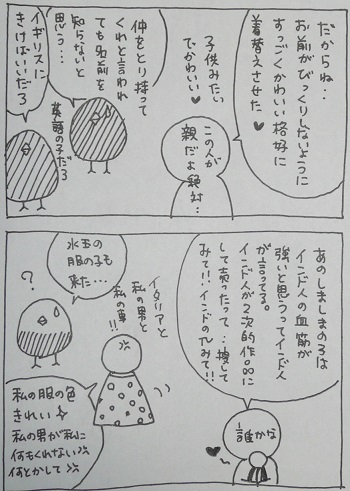 だからね‥
お前がびっくりしないように
すっごくかわいい格好に
着替えさせた♥
子供みたい
でかわいい♥
この人が
親だよ絶対…
仲をとり持って
くれと言われ
ても名前を
知らないと
思う…
英語の子だろ
イギリスに
きけばいいだろ
あのしましまのろは
インド人の血筋が
強いと思うってインド人
が言ってる。
インド人が2次的作○○に
して売ったって‥捜して
みて!!インドのみて!!
誰かな
イタリアと
私の男と
私の車!!
水玉の
服の子も
来た…
?
私の服の色
きれい☆
私の男が私に
何もくれない
何とかして